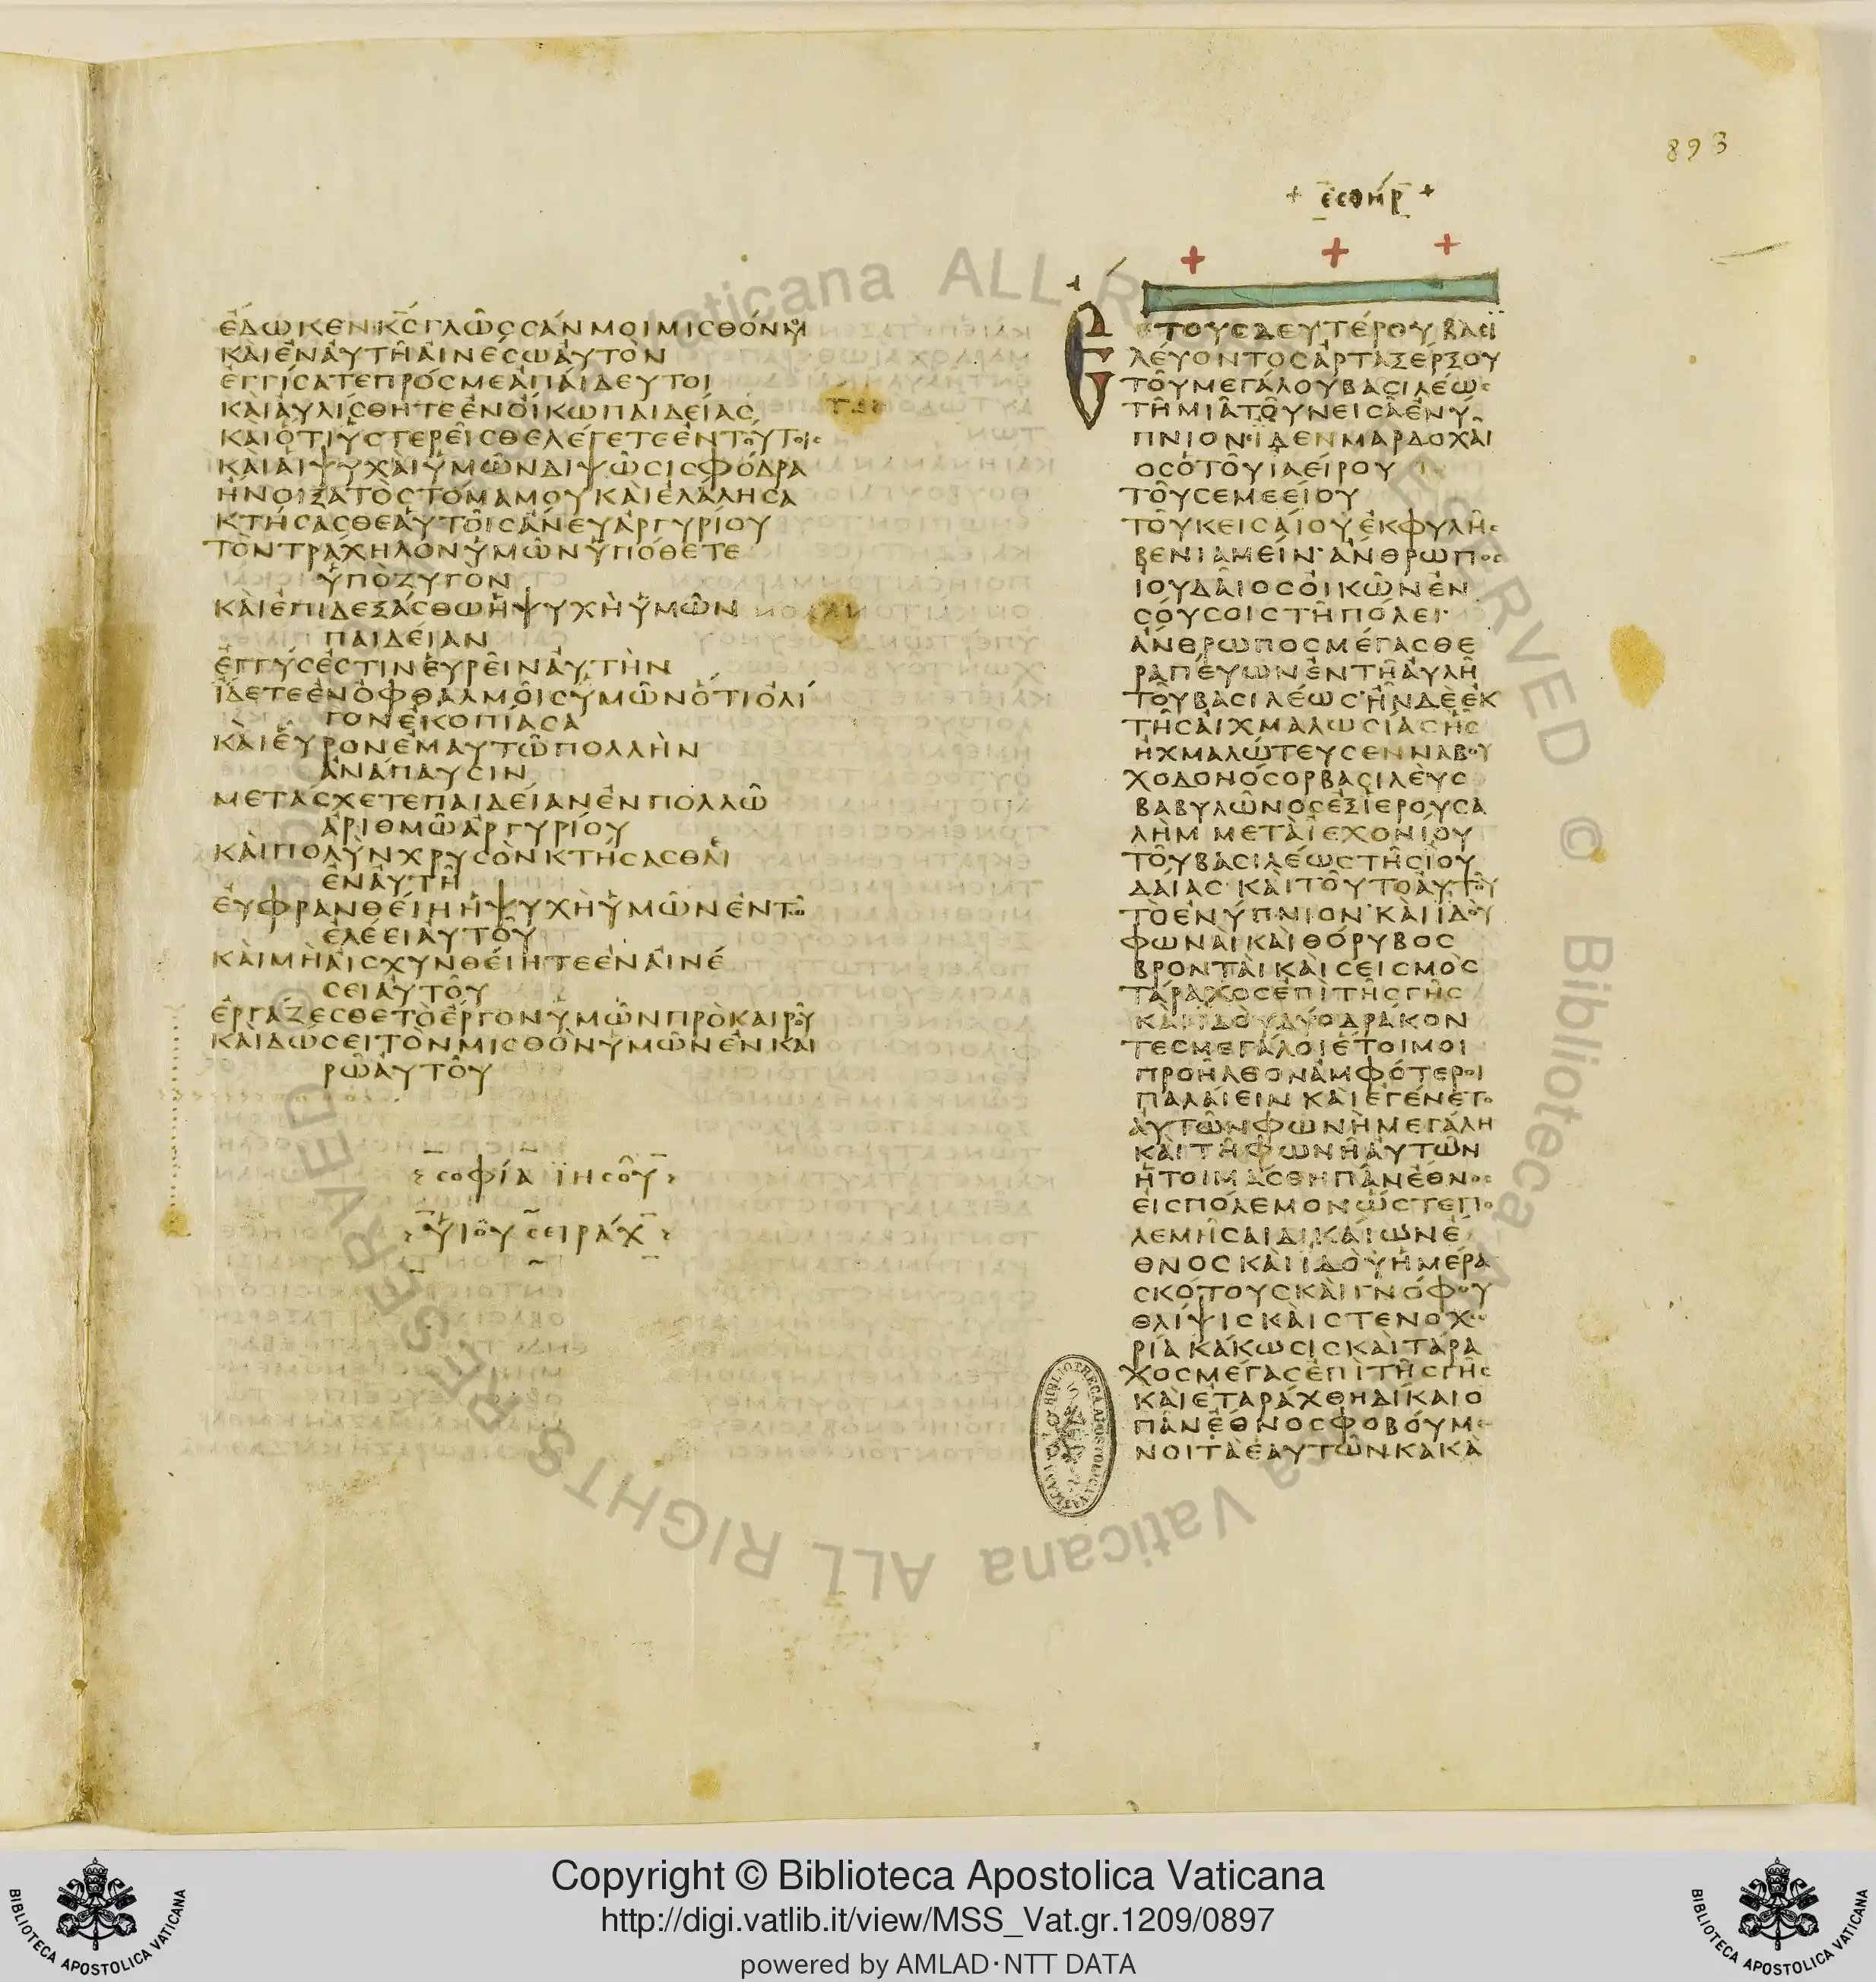 893
ἐδωκενκ̅ςγλῶςσάνμοιμισθόνμȣ
κὰιἐνἀυτῆἀινέσωἀυτὸν
ἐγγίσατεπρόσμεἀπάιδευτοι
κὰιἀυλίσθητεἐνὄικωπαιδείας
κὰιὁτιὑστερεῖσθελέγετεἐντούτοις
κὰιἁιψυχὰιὑμῶνδιψῶσισφόδρα
ἤνοιξατὸστόμαμουκὰιἐλάλησα
κτήσασθεἁυτοῖσἄνευἀργυρίου
τὸντράχηλονὑμῶνὑπόθετε
ὑπὸζυγὸν
κὰιἐπιδεξάσθωἡψυχὴὑμῶν
παιδείαν
ἐγγύσἐστινἑυρεῖνἀυτὴν
ἴδετεἐνὀφθαλμοῖσὑμῶνὅτιὀλί
γονἐκοπίασα
κὰιἑῦρονἐμαυτῶπολλὴν
ἀνάπαυσιν
μετάσχετεπαιδείανἐνπολλῶ
ἀριθμῶἀργυρίου
κὰιπολὺνχρυσὸνκτήσασθαι
ἐνἀυτῆ
ἐυφρανθείηἡψυχὴὑμῶνἐντῶ
ἐλέειἀυτοῦ
κὰιμὴἀισχυνθείητεἐνἀινέ
σειἀυτοῦ
ἐργάζεσθετὸἔργονὑμῶνπρὸκαιροῦ
κὰιδώσειτὸνμισθὸνὑμῶνἐνκαι
ρῶἀυτοῦ
σοφία ϊησοῦ
ὑιοῦ σειράχ
+ ἐσθήρ +
ἔτουσδευτέρουβασι
λέυοντοσἀρταξέρξου
τοῦμεγάλουβασιλέως
τῆμιᾶτοῦνεισὰἐνύ
πνιονἴδενμαρδοχᾶι
οσὁτοῦιαείρου
τοῦσεμεείου
τοῦκεισαίουἐκφυλῆς
βενιαμείν·ἄνθρωπος
ιουδᾶιοσὀικῶνἐν
σόυσοιστῆπόλει·
ἄνθρωποσμέγασθε
ραπέυωνἐντῆἀυλῆ
τοῦβασιλέωσ·ἦνδὲἐκ
τῆσἀιχμαλωσίασἧς
ἠχμαλώτευσενναβου
χοδονόσορβασιλὲυς
βαβυλῶνοσἐξϊερουσα
λὴμ μετὰϊεχονίου
τοῦβασιλέωστῆσϊου
δάιας κὰιτοῦτοἀυτοῦ
τὸἐνύπνιον·κὰιϊδοὺ
φωνὰικὰιθόρυβος
βρονταὶκὰισεισμὸς
τάραχοσἐπὶτῆσγῆς
κὰιϊδοὺδύοδράκον
τεσμεγάλοιἕτοιμοι
προῆλθονἀμφότεροι
παλάιειν κὰιεγένετο
ἀυτῶνφωνὴμεγάλη
κὰιτῆφωνῆἀυτῶν
ἡτοιμάσθηπᾶνἔθνος
εἰσπόλεμονὥστεπο
λεμῆσαιδικάιωνἔ
θνοσκὰιϊδοὺἡμέρα
σκότουσκὰιγνόφου
θλίψισκὰιστενοχω
ρία κάκωσισκὰιτάρα
χοσμέγασἐπὶτῆσγῆς
κὰιἐταράχθηδίκαιο
πᾶνἔθνοσφοβόυμε
νοιτὰἑαυτῶνκακὰ
BIBLIOTHECA APOSTOLICA VATICANA
Biblioteca Vaticana ALL RIGHTS RESERVED ©
Copyright © Biblioteca Apostolica Vaticana
http://digi.vatlib.it/view/MSS_Vat.gr.1209/0897
powered by AMLAD·NTT DATA
BIBLIOTECA APOSTOLICA VATICANA
BIBLIOTECA APOSTOLICA VATICANA